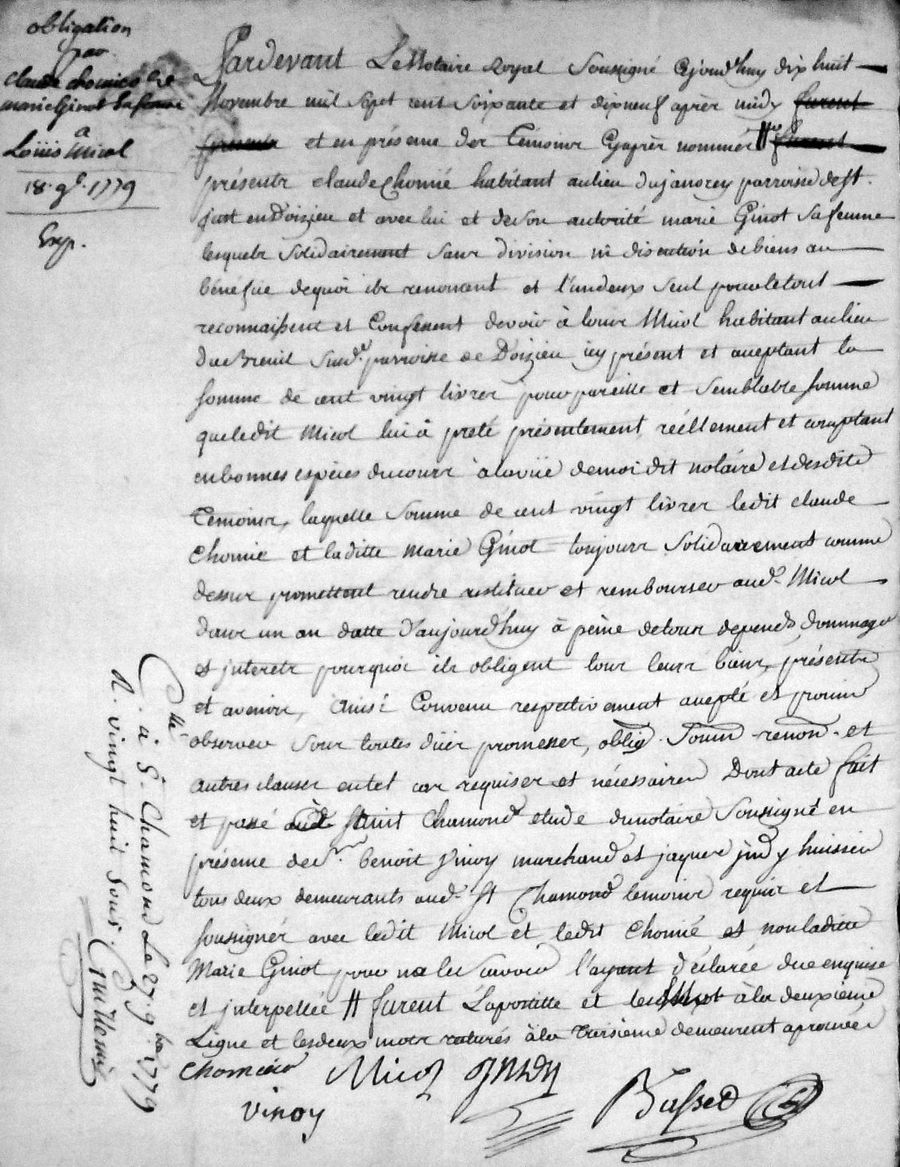 obligation
par
Claude chomié et
marie Ginot sa femme
a
Loüis Micol
18. 9e. 1779
Exp.
Pardevant Le Notaire Royal soussigné ajourd'huy dix huit
Novembre mil sept cent soixante et dixneuf après midy furent
presents et en présence des Témoins cyaprès nommés # furent
présents claude Chomié habitant au lieu du janorey parroisse de st.
just en Doizieu et avec lui et de son autorité marie Ginot sa femme
lesquels solidairement sans division ni discution de biens au
bénéfice dequoi ils renoncent et l'un deux seul pour le tout
reconnaissent et Confessent devoir à louis Micol habitant au lieu
du Breuil susde. parroisse de Doizieu icy présent et aceptant la
somme de cent vingt livres pour pareille et semblable somme
que ledit Micol lui à preté présentement, réellement et comptant
en bonnes espèces du cours à la vüe de moi dit notaire et desdits
Temoins, laquelle somme de cent vingt livres ledit claude
Chomié et laditte Marie Ginot toujours solidairement comme
dessus promettent rendre restituer et rembourser aud. Micol
dans un an datte d'aujourd'huy à peine de tous depends, dommages
et interets pourquoi ils obligent tous leurs biens, présents
et avenirs, Ainsi Convenu respectivement acepté et promis
observer sous toutes dües promesses, oblig. soum. renon. et
autres clauses en tel cas requises et nécessaires Dont acte fait
et passé aud. Saint Chamond etude du notaire soussigné en
présence de sr. benoit Vinoy marchand et jaques jindy huissier
tous deux demeurants aud. St Chamond temoins requis et
soussignés avec ledit Micol et ledit Chomié et non laditte
Marie Ginot pour ne le scavoir l'ayant déclarée düe enquise
et interpellée # furent L'apostille et les mot à la deuxième
Ligne et les deux mots raturés à la troisieme demeurent aprouvés
chomier Micol jindy
vinoy Basset
Clle. à St. Chamond Le 27 9bre 1779
R. vingt huit sous. Guillemin